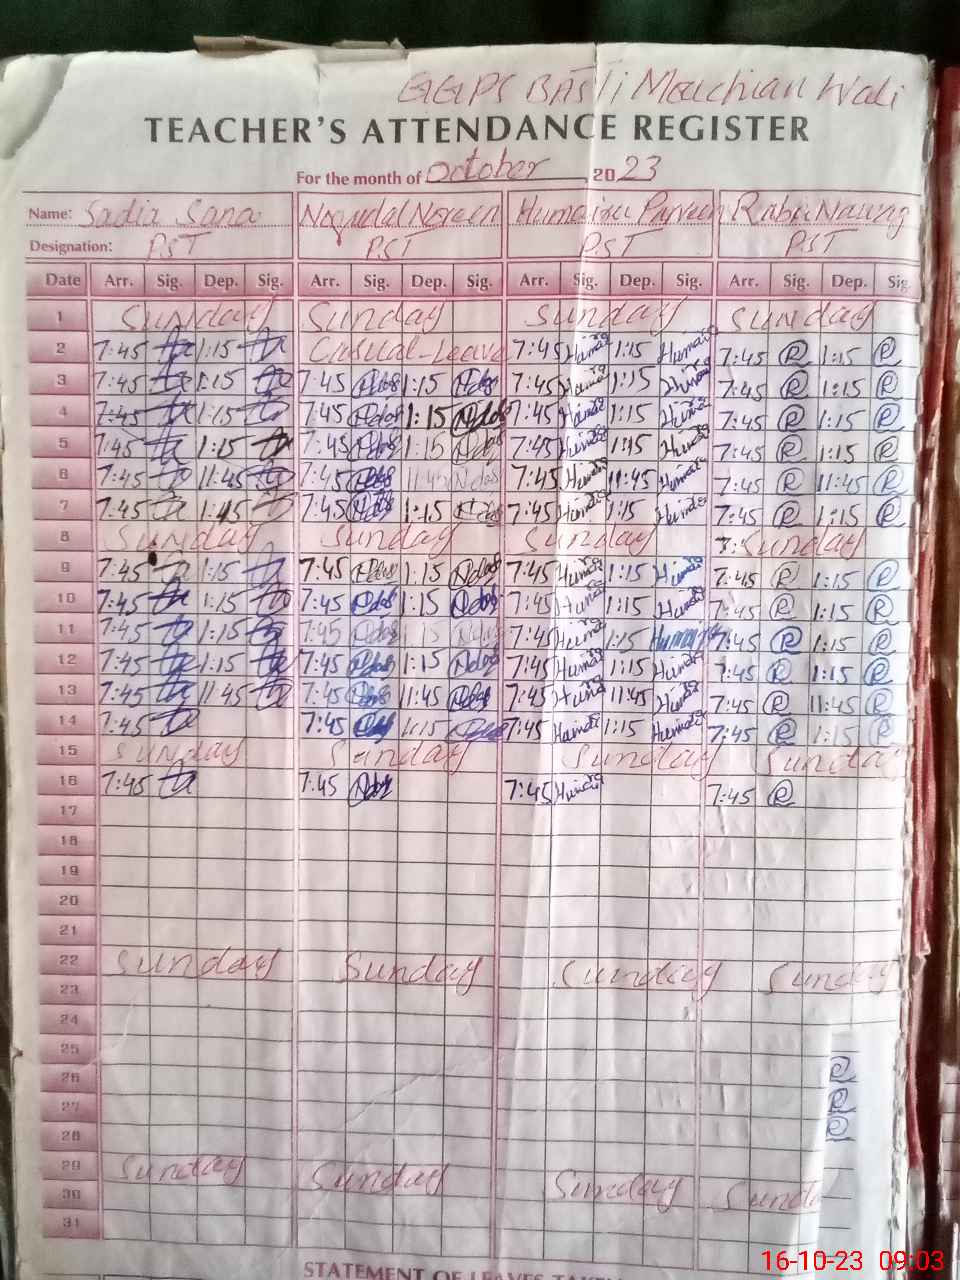 GGPS BASTi Mouchian Wali
TEACHER'S ATTENDANCE REGISTER
For the month of October 2023
Name: Sadia Sana Noreen Humaira Parveen Rabia
Designation: PST PST PST PST
Date Arr. Sig. Dep. Sig. Arr. Sig. Dep. Sig. Arr. Sig. Dep. Sig. Arr. Sig. Dep. Sig.
1 Sunday Sunday Sunday Sunday
2 7:45 1:15 Casual-Leave 7:45 Humaira 1:15 Humaira 7:45 R 1:15 R
3 7:45 1:15 7:45 Ndos 1:15 Ndos 7:45 Humaira 1:15 Humaira 7:45 R 1:15 R
4 7:45 1:15 7:45 Ndos 1:15 Ndos 7:45 Humaira 1:15 Humaira 7:45 R 1:15 R
5 7:45 1:15 7:45 Ndos 1:15 Ndos 7:45 Humaira 1:15 Humaira 7:45 R 1:15 R
6 7:45 11:45 7:45 Ndos 11:45 Ndos 7:45 Humaira 11:45 Humaira 7:45 R 11:45 R
7 7:45 1:45 7:45 Ndos 1:15 Ndos 7:45 Humaira 1:15 Humaira 7:45 R 1:15 R
8 Sunday Sunday Sunday 7: Sunday
9 7:45 1:15 7:45 Ndos 1:15 Ndos 7:45 Humaira 1:15 Humaira 7:45 R 1:15 R
10 7:45 1:15 7:45 Ndos 1:15 Ndos 7:45 Humaira 1:15 Humaira 7:45 R 1:15 R
11 7:45 1:15 7:45 Ndos 1:15 Ndos 7:45 Humaira 1:15 Humaira 7:45 R 1:15 R
12 7:45 1:15 7:45 Ndos 1:15 Ndos 7:45 Humaira 1:15 Humaira 7:45 R 1:15 R
13 7:45 11:45 7:45 Ndos 11:45 Ndos 7:45 Humaira 11:45 Humaira 7:45 R 11:45 R
14 7:45 7:45 1:15 7:45 Humaira 1:15 Humaira 7:45 R 1:15 R
15 Sunday Sunday Sunday Sunday
16 7:45 7:45 Ndos 7:45 Humaira 7:45 R
17
18
19
20
21
22 Sunday Sunday Sunday Sunday
23
24
25
26 R
27 R
28 R
29 Sunday Sunday Sunday Sunda
30
31
STATEMENT OF LEAVES TAKEN
16-10-23 09:03